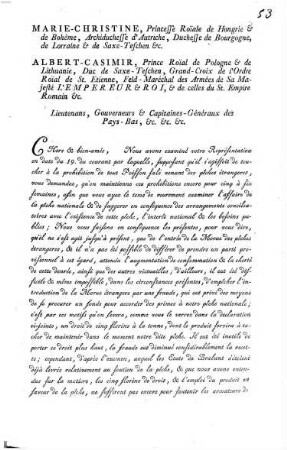 53
MARIE-CHRISTINE, Princesse Roïale de Hongrie &
de Bohème, Archiduchesse d'Autriche, Duchesse de Bourgogne,
de Lorraine & de Saxe-Teschen &c.
ALBERT-CASIMIR, Prince Roïal de Pologne & de
Lithuanie, Duc de Saxe-Teschen, Grand-Croix de l'Ordre
Roïal de St. Etienne, Feld-Maréchal des Armées de Sa Ma-
jesté L'EMPEREUR & ROI, & de celles du St. Empire
Romain &c.
Lieutenans, Gouverneurs & Capitaines-Généraux des
Pays-Bas, &c. &c. &c.
CHers & bien-amés, Nous avons examiné votre Représentation
en date du 19. du courant par laquelle, supposant qu'il s'agissoit de tou-
cher à la prohibition de tout Poisson salé venant des pêches étrangeres,
vous demandez, qu'on maintienne ces prohibitions encore pour cinq à six
semaines, afin que vous ayez le tems de mûrement examiner l'affaire de
la pêche nationale & de suggerer en conséquence des arrangemens concilia-
toires avec l'existence de cette pêche, l'interêt national & les besoins pu-
blics; Nous vous faisons en conséquence les présentes, pour vous dire,
qu'il ne s'est agit jusqu'à présent, que de l'entrée de la Morue des pêches
étrangeres, & il n'a pas été possible de différer de prendre un parti pro-
visionnel à cet égard, attendu l'augmentation de consommation & la cherté
de cette denrée, ainsi que des autres victuailles; d'ailleurs, il eut été diffi-
cile & même impossible, dans les circonstances présentes, d'empêcher l'in-
troduction de la Morue étrangere par une fraude, qui eut privé des moyens
de se procurer un fonds pour accorder des primes à notre pêche nationale;
c'est par ces motifs qu'en leurs, comme vous le verrez dans la Déclaration
ci-jointe, un droit de cinq florins à la tonne, dont le produit servira à tou-
cher de maintenir dans le moment notre dite pêche. Il eut été inutile de
porter ce droit plus haut, la fraude eut diminué considérablement la recet-
te; cependant, d'après l'examen, auquel les Etats de Brabant s'étoient
déjà livrés relativement au soutien de la pêche, & que nous avons enten-
dus sur la matiere, les cinq florins de droit, & l'emploi du produit en
faveur de la pêche, ne suffiront pas encore pour soutenir les armateurs de